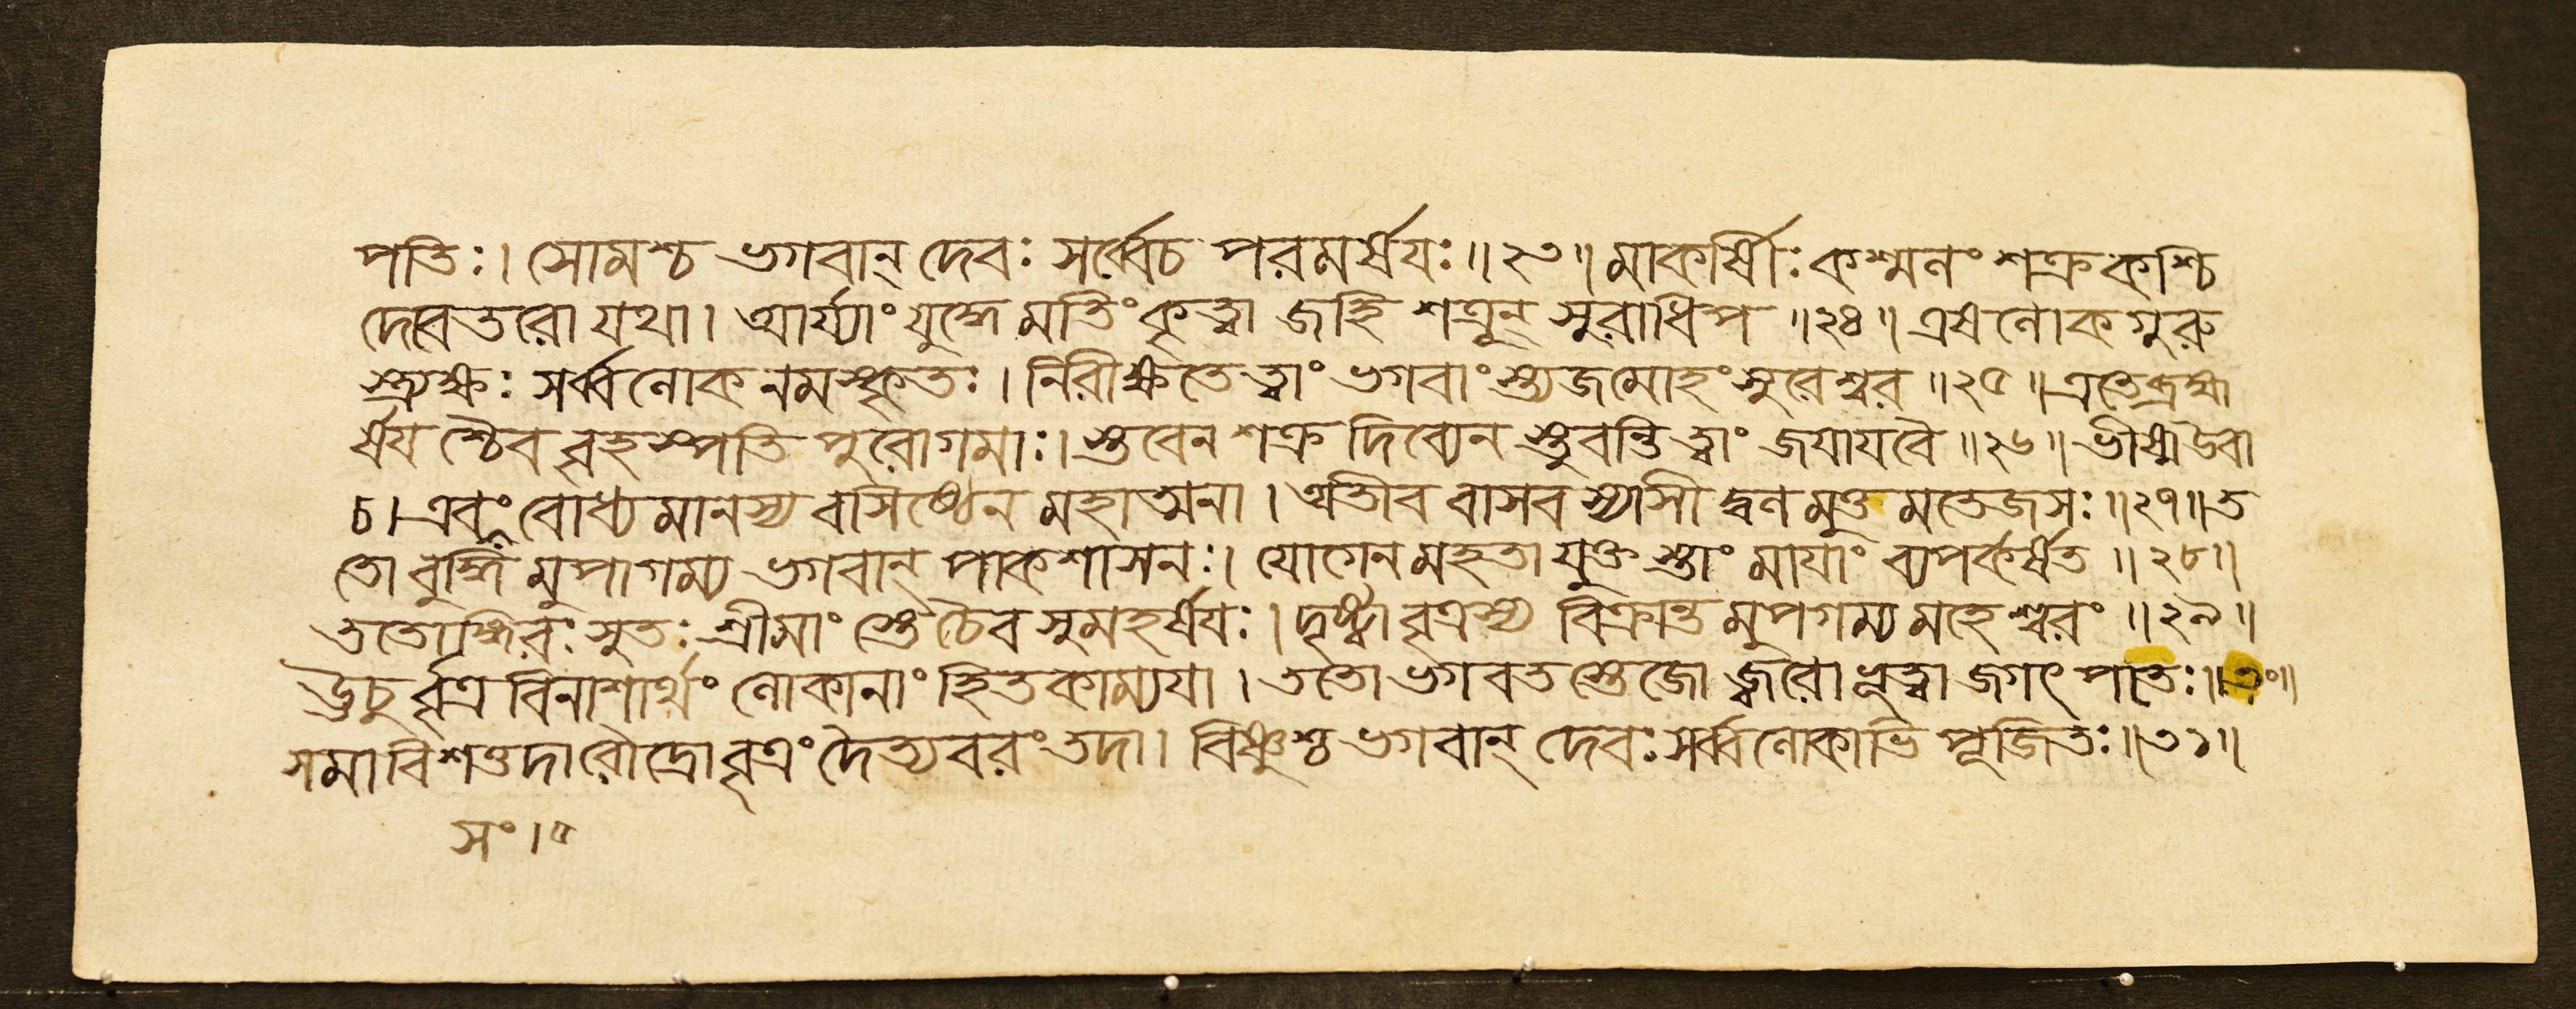 পতিঃ। সোমশ্চ ভগবান্ দেবঃ সর্ব্বেচ পরমর্ষয়ঃ॥২৩॥ মাকার্ষীঃ কশ্মলং শক্র কশ্চি
দেবেতরো যথা। আর্য্যাং যুদ্ধে মতিং কৃত্বা জহি শত্রূন্ সুরাধিপ ॥২৪॥ এষ লোকগুরু
স্ত্র্যক্ষঃ সর্ব্বলোক নমস্কৃতঃ। নিরীক্ষতে ত্বাং ভগবাংস্ত্যজ মোহং সুরেশ্বর ॥২৫॥ এতে ব্রহ্ম
র্ষয়শ্চৈব বৃহস্পতি পুরোগমাঃ। স্তবেন শক্র দিব্যেন স্তুবন্তি ত্বাং জয়ায়বৈ ॥২৬॥ ভীষ্মউবা
চ। এবং বোধ্যমানস্য বসিষ্ঠেন মহাত্মনা। অতীব বাসবস্যাসীদ্বলমুত্তমতেজসঃ ॥২৭॥ ত
তো বুদ্ধি মুপাগম্য ভগবান্ পাকশাসনঃ। যোগেন মহতা যুক্তস্তাং মায়াং ব্যপকর্ষত ॥২৮॥
ততোঙ্গিরঃ সুতঃ শ্রীমাং স্তে চৈব সুমহর্ষয়ঃ। দৃষ্ট্বা বৃত্রস্য বিক্রান্ত মুপগম্য মহেশ্বরং ॥২৯॥
ঊচুর্ব্বৃত্র বিনাশার্থং লোকানাং হিতকাম্যয়া। ততো ভগবতস্তেজো জ্বরো ভূত্বা জগৎ পতেঃ॥৩০॥
সমাবিশত্তদা রৌদ্রো বৃত্রং দৈত্যবরং তদা। বিষ্ণুশ্চ ভগবান্ দেবঃ সর্ব্বলোকাভি পূজিতঃ॥৩১॥
সং।৫